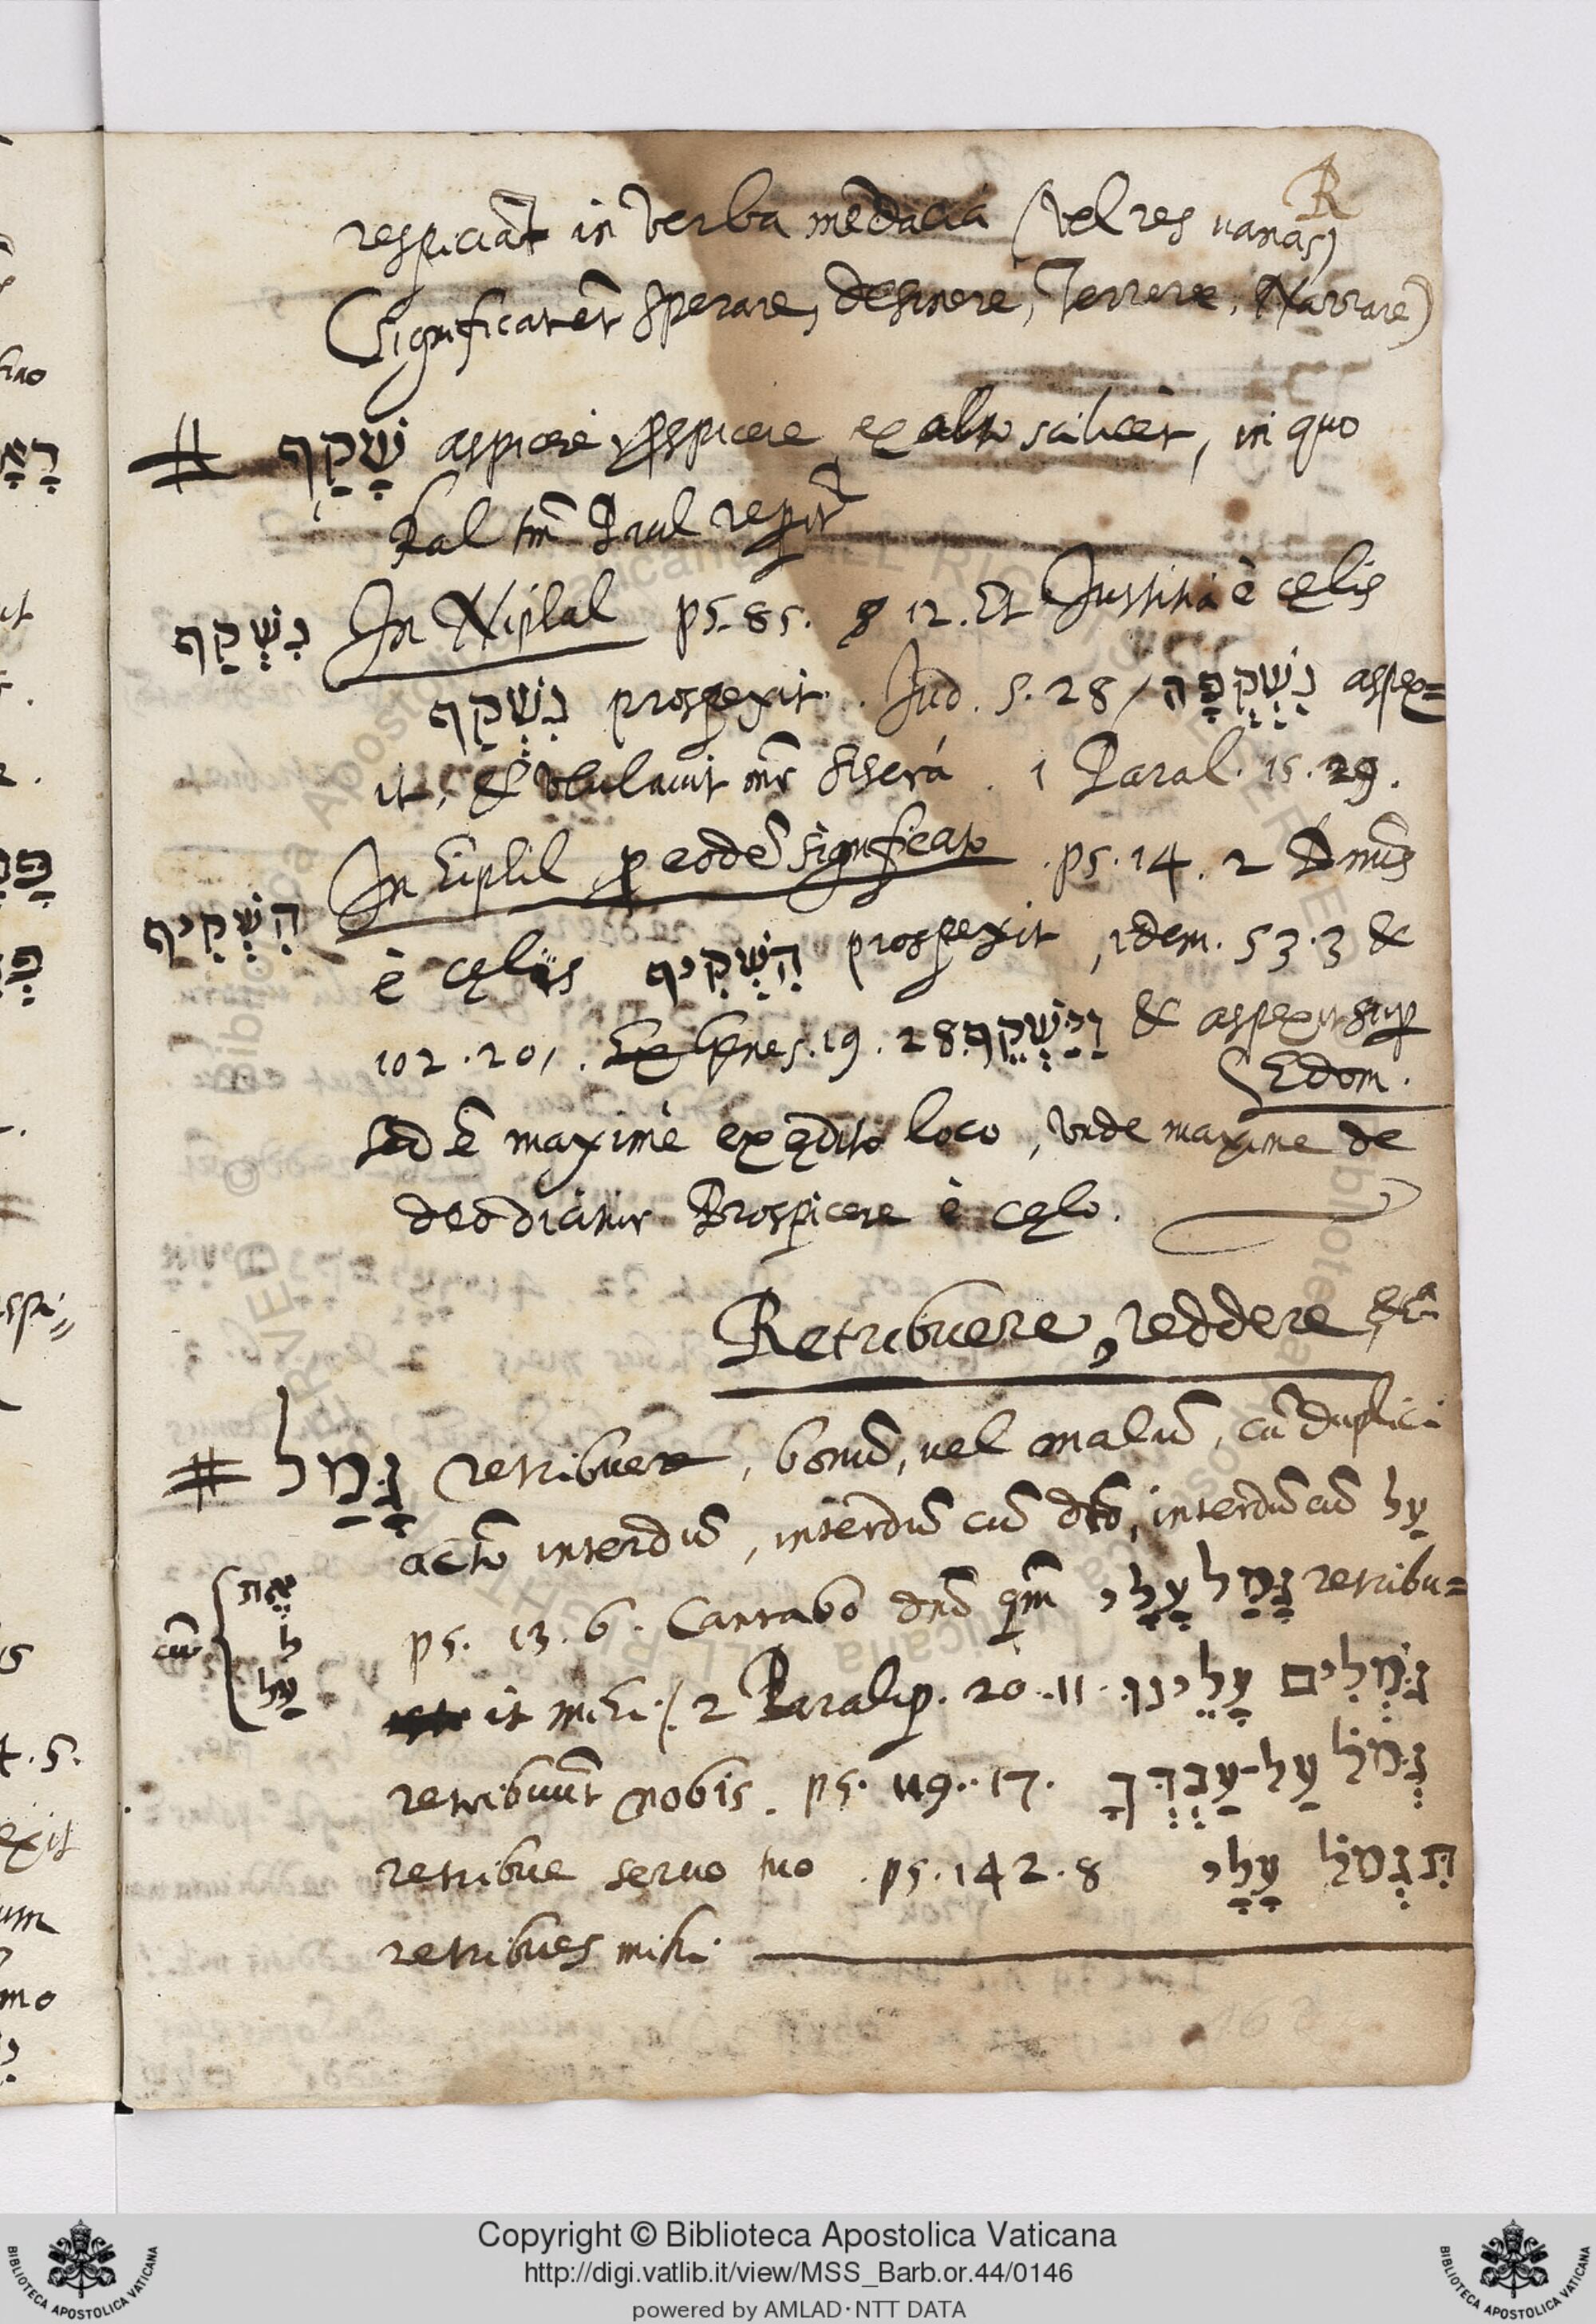 R
respiciāt in verba mēdacia (vel res uanas)
(Significat et̄ sperare, desinere, Terrere, Narrare)
# שָׁקַף aspicere, ꝓspicere ex alto scilicet, in quo
Kal tm̄ Paul reꝑit̄
נִשְׁקַף In Niphal ps. 85. 12. Et Iustitia è cęlis
נִשְׁקַף prospexit. Iud. 5. 28 / נִשְׁקְפָה aspex=
it, & vlulauit mr̄ Siserá. 1 Paral. 15. 29.
In Hiphil ꝓ eodē significato . ps. 14. 2 Dnūs
הִשְׁקִיף
è cęlis הִשְׁקִיף prospexit, idem. 53. 3 &
102. 20/. Ex Genes. 19. 28. וַיַּשְׁקֵף & aspexit suꝑ
Sedom.
sed ē maximè ex ędito loco, vnde maxime de
deo dicitur Prospicere è cęlo.
Retribuere, reddere &cᵃ
# גָּמַל retribuere, bonū, vel malū, cū duplici
actō interdū, interdū cū dtō, interdū cū עַל
cū { אֶת
לְ
עַל
ps. 13. 6. Cantabo dnō qm̄ גָּמַל עָלָי retribu=
it mihi /. 2 Paralip. 20. 11. גֹּמְלִים עָלֵינוּ
retribuūt nobis. ps. 119. 17. גְּמֹל עַל-עַבְדְּךָ
retribue seruo tuo . ps. 142. 8 תִגְמֹל עָלָי
retribues mihi.
Copyright © Biblioteca Apostolica Vaticana
http://digi.vatlib.it/view/MSS_Barb.or.44/0146
powered by AMLAD·NTT DATA
BIBLIOTECA APOSTOLICA VATICANA
BIBLIOTECA APOSTOLICA VATICANA